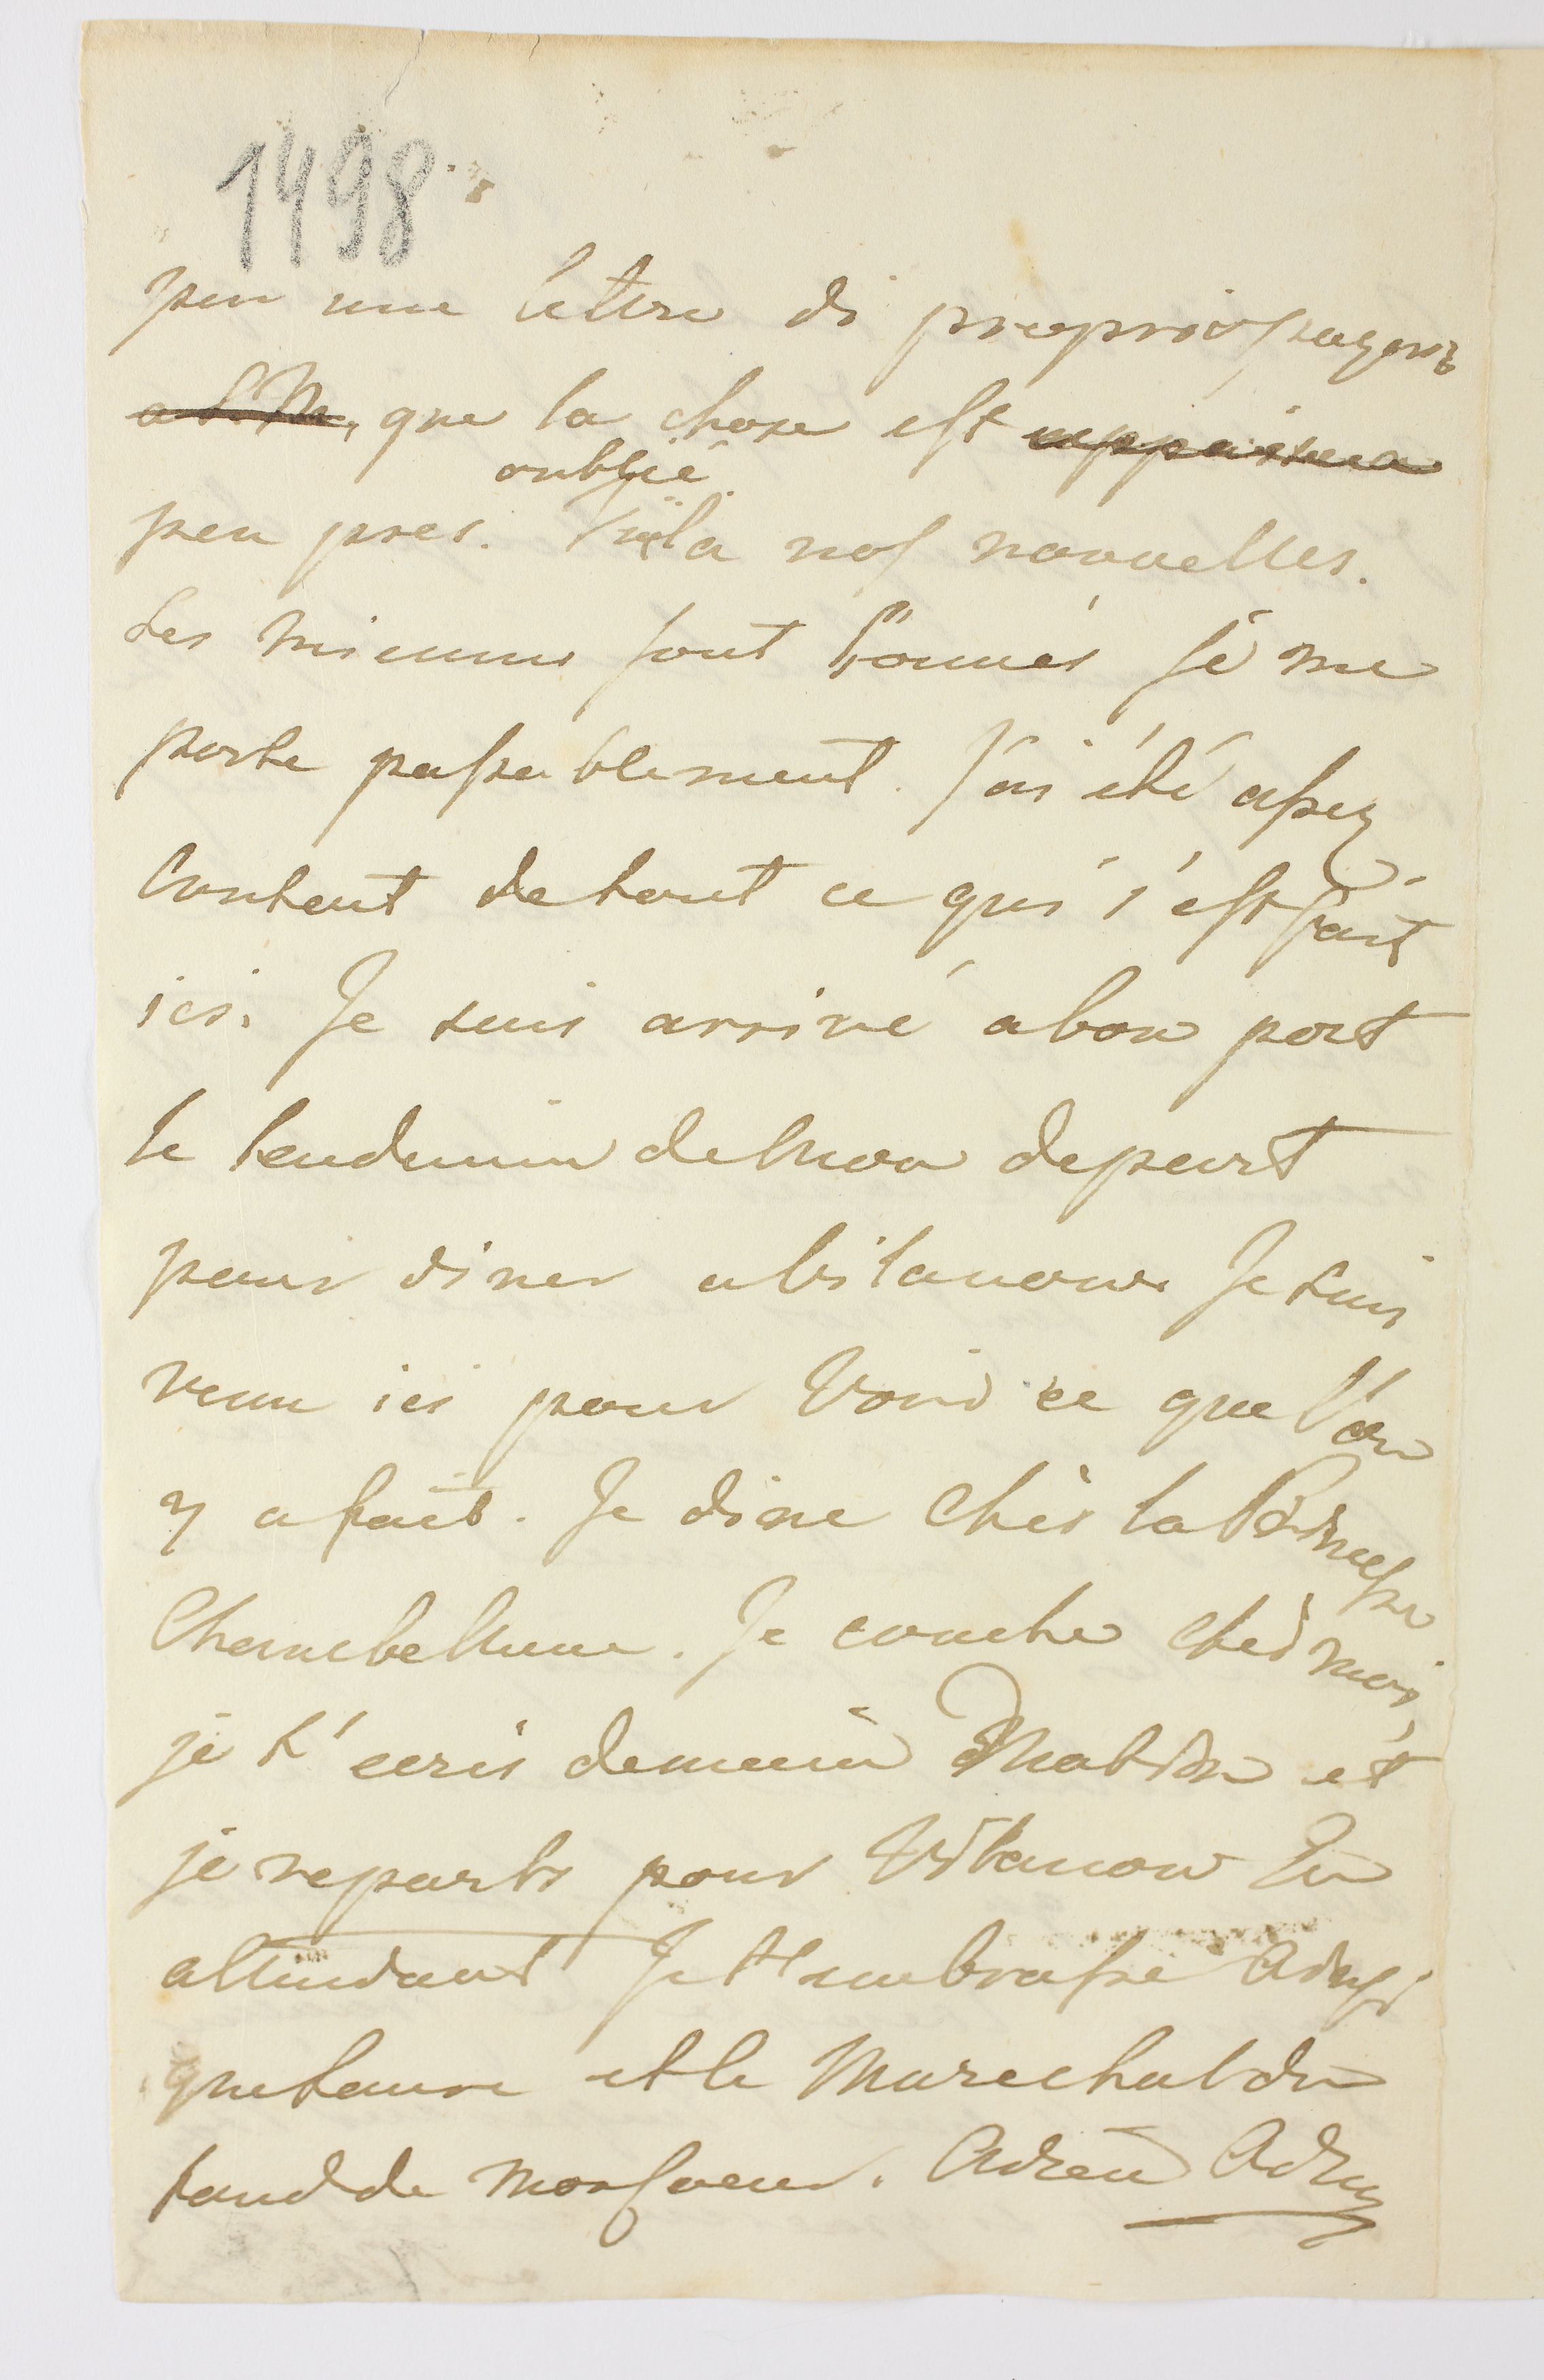 1498
peu une lettre di proprio pugno
a S. M., que la chose est
oubliée
peu pres. Voila nos nouvelles.
Les miennes sont bonnes je me
porte passablement. J'ai été assez
Content de tout ce qui s'est fait
ici. Je suis arrivé a bon port
le lendemin de mon depart
pour diner a Vilanow. Je suis
venu ici pour Voir ce que l'on
y a fait. Je dine chès la Princesse
Je couche chès moi,
je t'ecris demain Matin et
je reparts pour Vilanow En
attendant Je t'embrasse ainsi
que Laure et le Marechal du
fond de mon coeur. Adieu